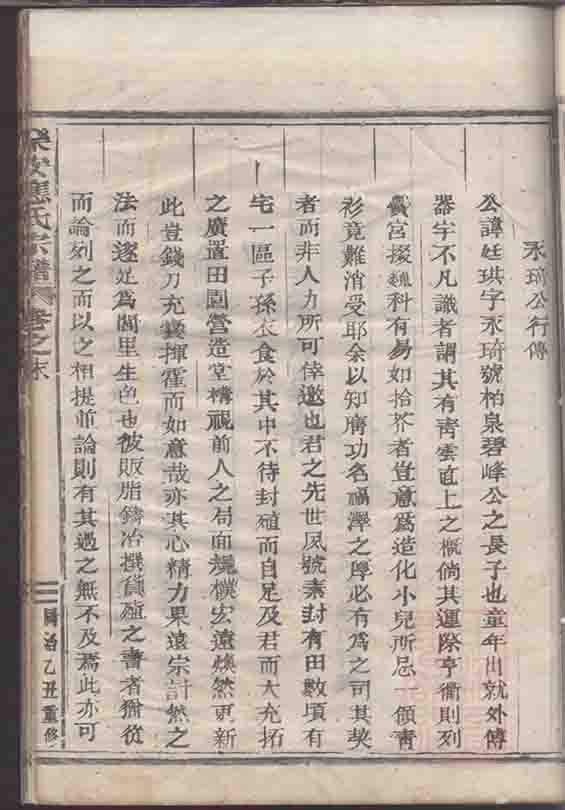 永琦公行傳
公諱廷珙字永琦號柏泉碧峰公之長子也童年出就外傅
器宇不凡識者謂其有靑雲直上之概倘其運際亨衢則列
黌宮掇巍科有易如拾芥者豈意爲造化小兒所忌一領靑
衫竟難消受耶余以知廣功名福澤之厚必有爲之司其契
者而非人力所可倖邀也君之先世夙號素封有田數頃有
宅一區子孫衣食於其中不待封殖而自足及君而大充拓
之廣置田園營造堂構視前人之局面規模宏遠煥然更新
此豈錢刀充橐揮霍而如意哉亦其心精力果遠宗計然之
法而遂足爲閭里生色也彼販脂鑄冶撰貨殖之書者猶從
而論列之而以之相提並論則有其過之無不及焉此亦可
樂安應氏宗譜 卷之末
同治乙丑重修